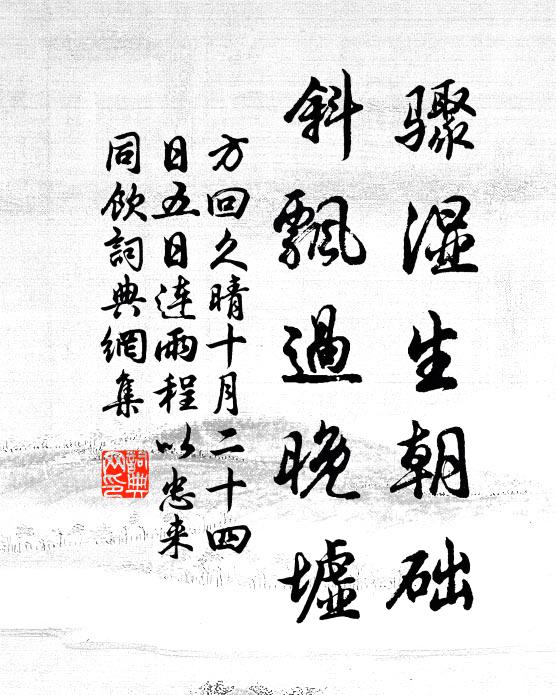 驟湿生朝础
斜飄過晚墟
方回久晴十月二十四
日五日連雨程以忠来
同飲詞典網集